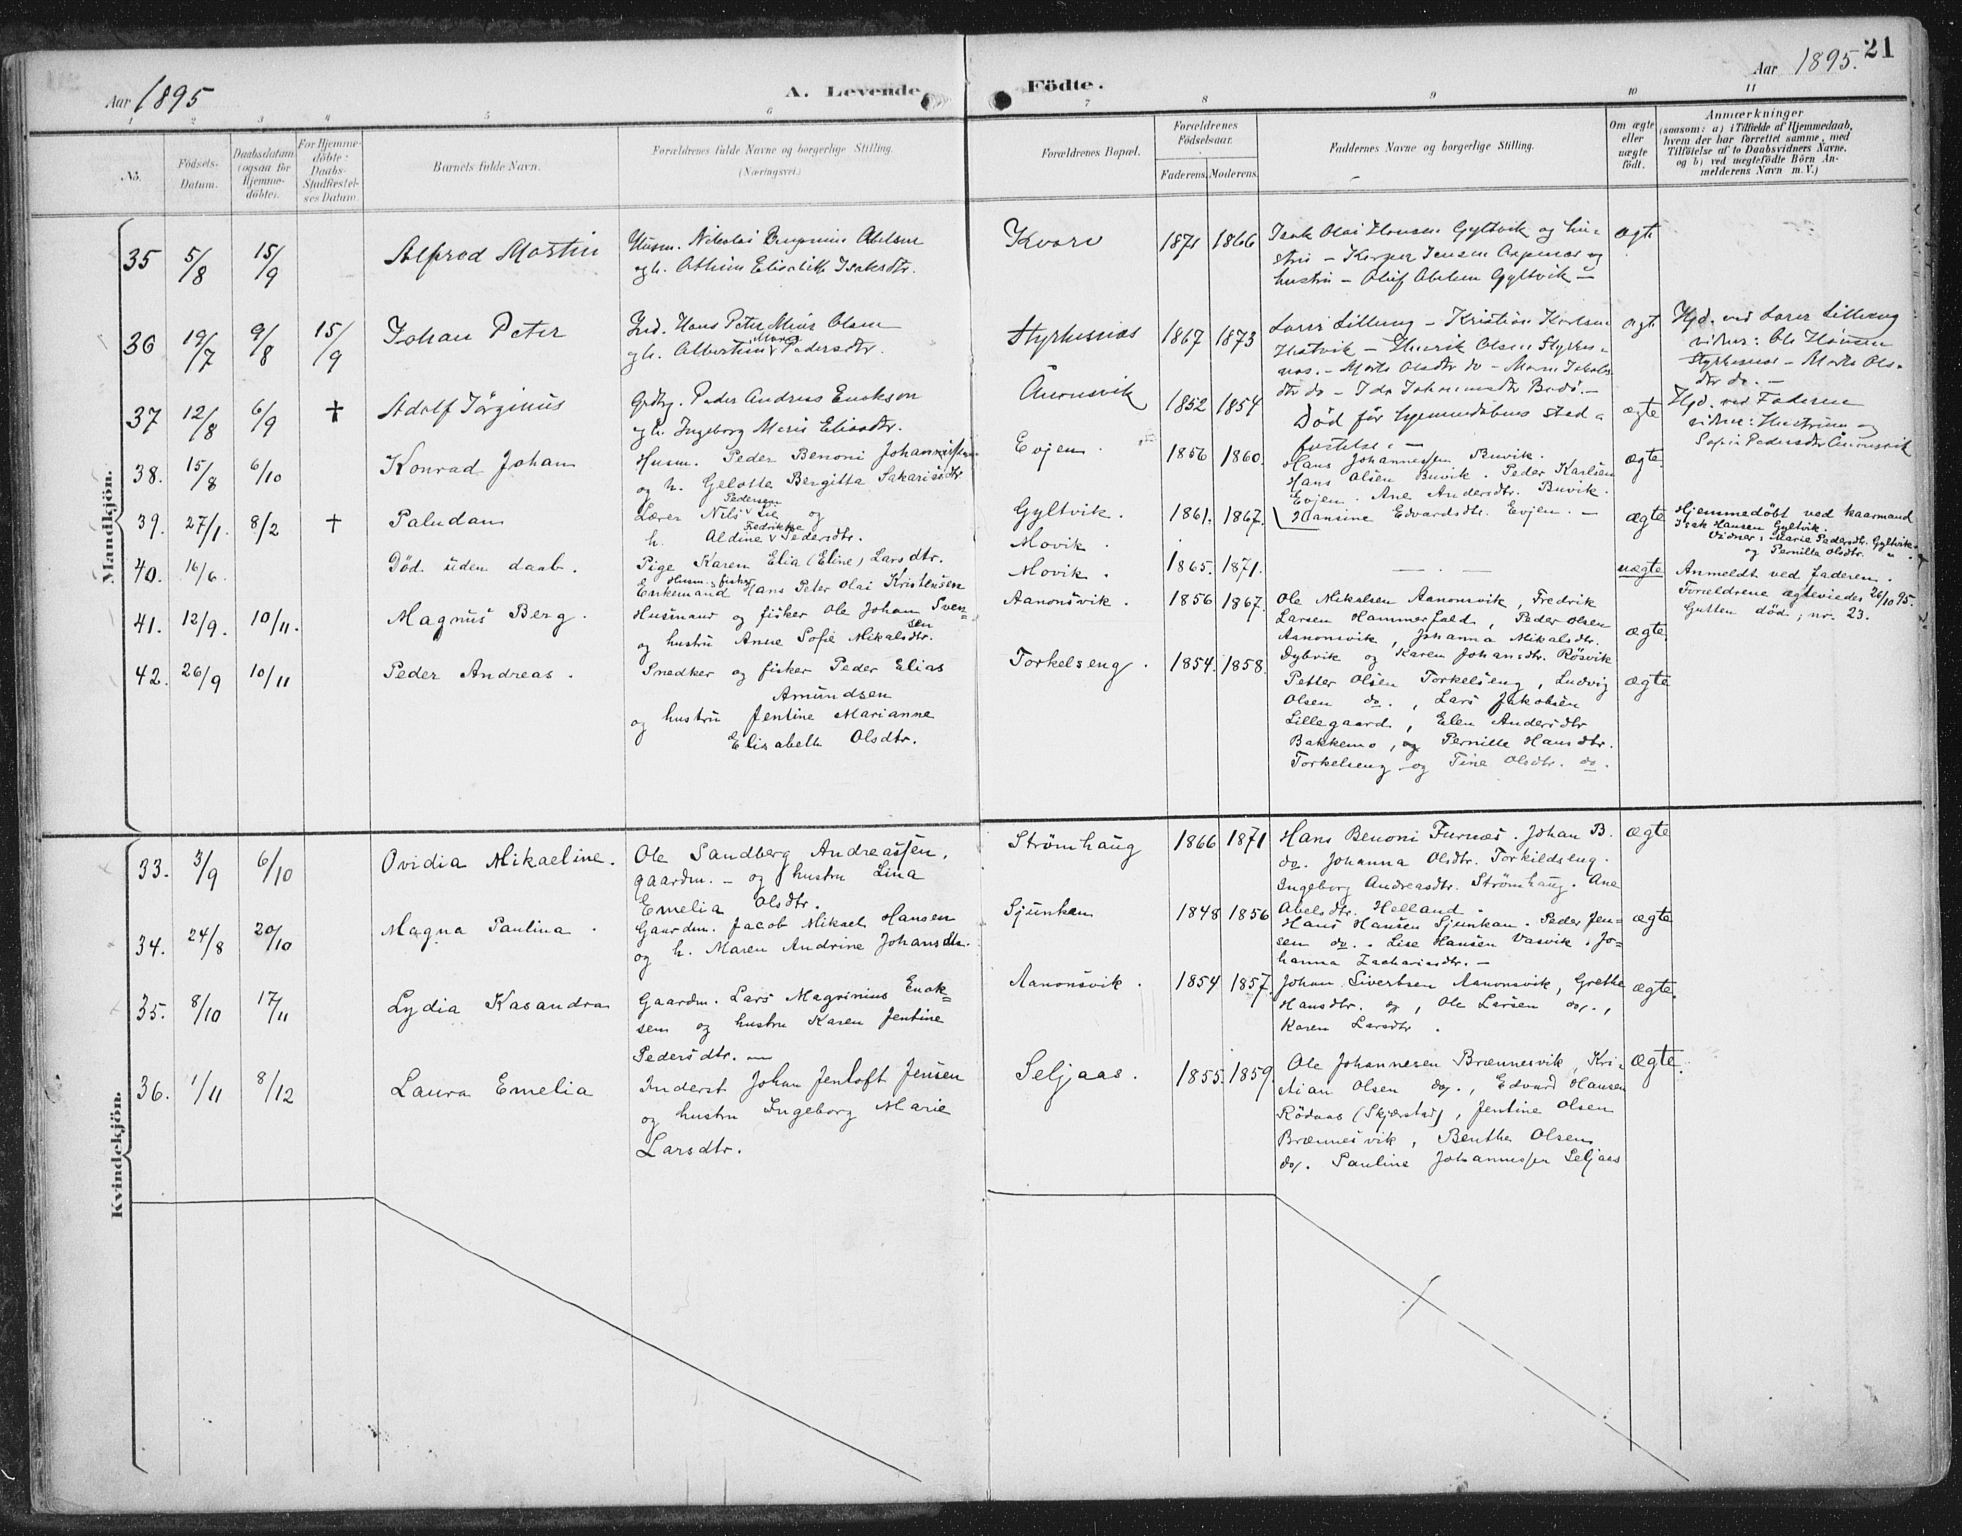 21
Aar 1895
A. Levende
Födte.
Aar 1895.
1 2 3 4 5 6 7 8 9 10 11
No.
Födsels-
Datum.
Daabsdatum
(ogsaa for
Hjemme-
döbte).
For Hjemme-
döbte:
Daabs-
Stadfæstel-
ses Datum.
Barnets fulde Navn.
Forældrenes fulde Navne og borgerlige Stilling.
(Næringsvei.)
Forældrenes Bopæl.
Forældrenes
Födselsaar.
Faderens. Moderens.
Faddernes Navne og borgerlige Stilling.
Om ægte
eller
uægte
födt.
Anmærkninger
(saasom: a) i Tilfælde af Hjemmedaab,
hvem der har forrettet samme, med
Tilföielse af to Daabsvidners Navne.
og b) ved uegtefödte Börn An-
melderens Navn m. V.)
Mandkjön.
35 5/8 15/9
Alfred Martin
Husm. Nikolai Benonius Abelsen
og h. Athine Elisabeth Isaksdtr.
1871 1866
Isak Olai Hansen Gyltvik og hu-
stru – Kasper Jensen Aspenes og
hustru – Oluf Abelsen Gyltvik –
ægte
36 19/7 9/8 15/9
Johan Peter
Ind. Hans Peter Olsen
og h. Albertine Maria Pedersdtr.
Styrkesnæs
1867 1873
Kristian Karlsen
Hatvik – Henrik Olsen Styrkes-
næs. – Marte Olsdtr do – Maren Jakobs-
dtr do – Ida Johannesdtr Bodø. –
ægte
Hjd. ved
vidner: Ole Hansen
Styrkesnæs – Marte Ols-
dtr do. –
37 12/8 6/9 †
Adolf Jørginus
Peder Andreas Enokson
og h. Ingeborg Marie Eliasdtr.
Ånonsvik
1852 1854
Død før hjemmedøbens stad-
festelse. –
ægte
Hjd. ved Faderen
vidner: Hustruen og
Sofie Pedersdtr Ånonsvik
38. 15/8 6/10
Konrad Johan
Husm. Peder Benoni
og h. Gelotte Bergitta Sakariasdtr
Evjen
1856 1860.
Hans Johannessen Buvik.
Hans Olsen Buvik. Peder Karlsen
Evjen. Ane Andersdtr. Buvik.
Hansine Edvardsdtr. Evjen. –
ægte
39. 27/1. 8/2 †
Paludan
Lærer Nils Pedersen Lie og
h. Aldine Fedrikke Pedersdtr.
Gyltvik.
1861. 1867.
ægte
Hjemmedøbt ved kaarmand
Isak Hansen Gyltvik.
Vidner: Marie Pedersdtr. Gyltvik
og Pernille Olsdtr. "
40. 16/6.
Død uden daab.
Pige Karen Elia (Eline) Larsdtr.
Enkemand Husm. & fisker Hans Peter Olai Kristensen
Movik.
Movik.
1865. 1871.
– . –
uægte
Anmeldt ved faderen.
Forældrene ægteviedes 26/10 95.
Gutten død, nr. 23.
41. 12/9. 10/11.
Magnus Berg.
Husmand og fisker Ole Johan Sven-
sen
og hustru Anne Sofie Mikalsdtr.
Aanonsvik.
1856 1867.
Ole Mikalsen Aanonsvik, Fredrik
Larsen Hammerfald, Peder Olsen
Aanonsvik, Johanna Mikalsdtr.
Dybvik og Karen Johansdtr. Røsvik
ægte
42. 26/9 10/11
Peder Andreas.
Snedker og fisker Peder Elias
Amundsen
og hustru Jentine Marianne
Elisabeth Olsdtr.
Torkelseng.
1854. 1858.
Petter Olsen Torkelseng, Ludvig
Olsen do., Lars Jakobsen
Lillegaard, Elen Andersdtr
Bakkemo, og Pernille Hansdtr.
Torkelseng og Tine Olsdtr. do.
ægte
Kvindekjön.
33. 3/9 6/10
Ovidia Mikaeline.
Ole Sandberg Andreassen.
gaardm. – og hustru Lina
Emelia Olsdtr.
Strømhaug
1866 1871
Hans Benoni Furnæs. Johan B.
do. Johanna Olsdtr. Torkildseng.
Ingeborg Andreasdtr. Strømhaug. Ane
Abelsdtr. Helland.
ægte
34. 24/8 20/10
Magna Paulina.
Gaardm. Jacob Mikael Hansen
og h. Maren Andrine Johansdtr.
Sjunkan
1848 1856
Hans Hansen Sjunkan. Peder Jen-
sen do. Lise Hansen Vasvik. Jo-
hanna Zachariasdtr. –
ægte
35. 8/10 17/11
Lydia Kasandra
Gaardm. Lars Magrinius Enok-
sen og hustru Karen Jentine
Pedersdtr. –
Aanonsvik.
1854 1857.
Johan Sivertsen Aanonsvik, Grethe
Hansdtr. do, Ole Larsen do.,
Karen Larsdtr.
ægte.
36. 1/11 8/12
Laura Emelia
Inderst Johan Jentoft Jensen
og hustru Ingeborg Marie
Larsdtr.
Seljaas.
1855. 1859.
Ole Johannesen Brænnesvik, Kri-
stian Olsen do., Edvard Hansen
Rödaas (Skjerstad), Jentine Olsen
Brænnesvik, Benthe Olsen
do. Pauline Johannessen Seljaas
ægte.